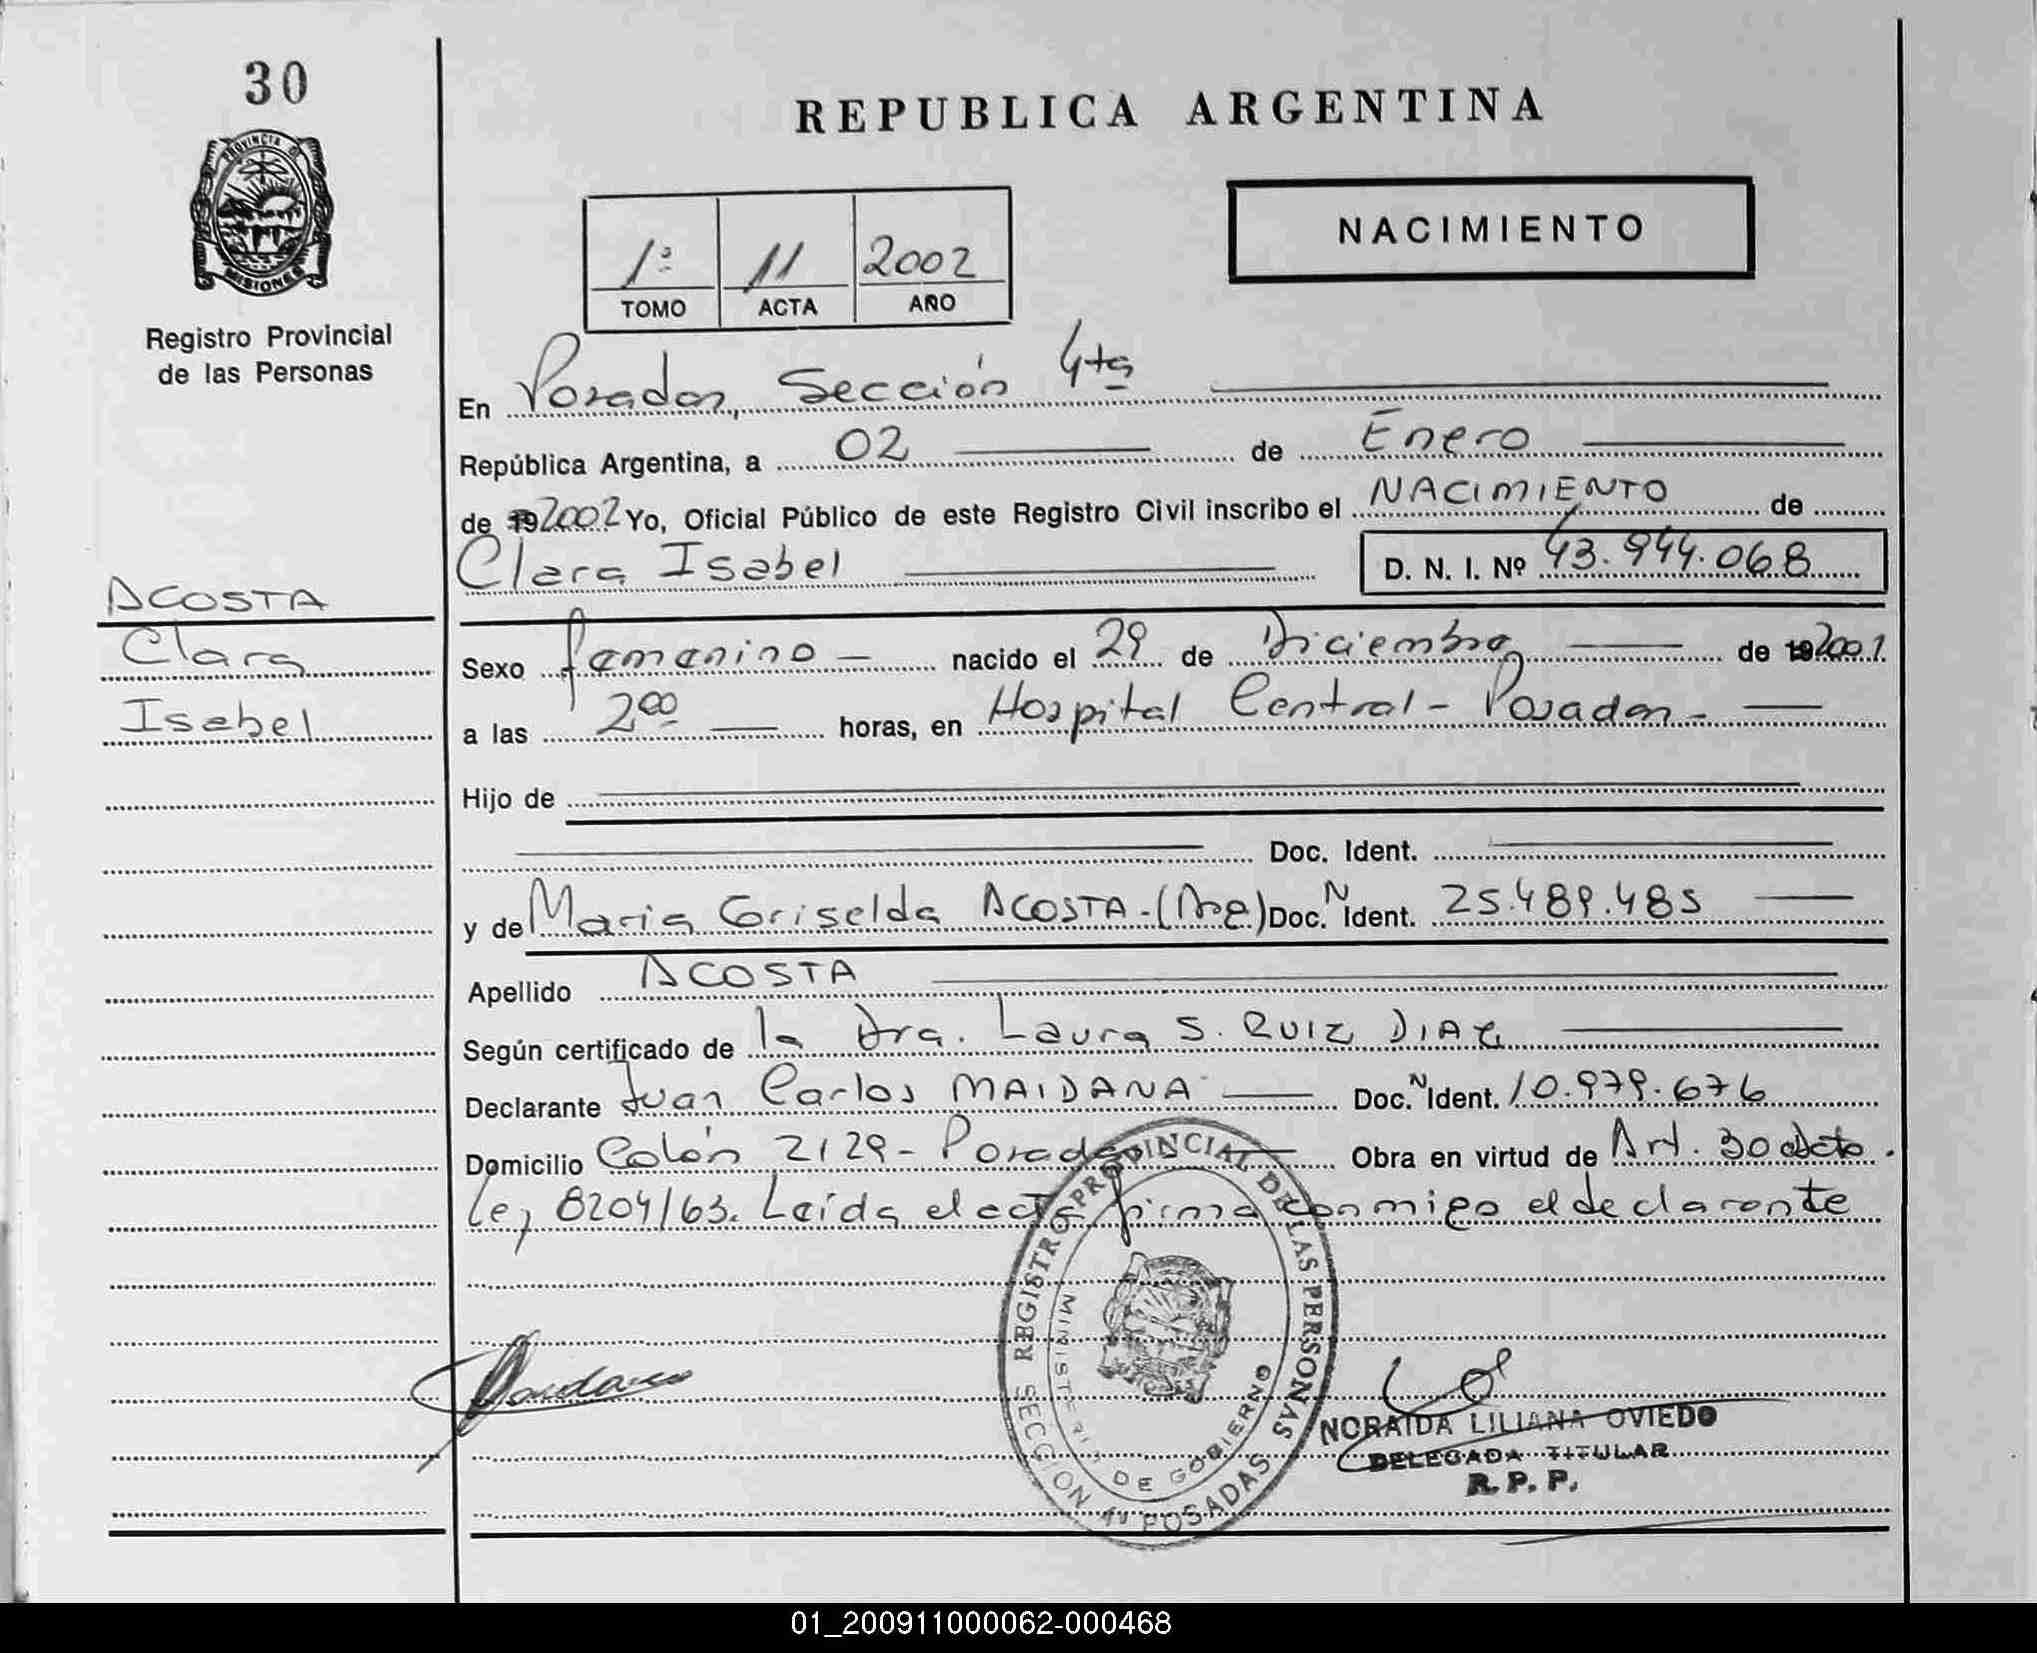 30
PROVINCIA DE
MISIONES
Registro Provincial
de las Personas
REPUBLICA ARGENTINA
NACIMIENTO
1º 11 2002
TOMO ACTA AÑO
En Posadas, Sección 4ta
República Argentina, a 02 de Enero
de 19 2002 Yo, Oficial Público de este Registro Civil inscribo el NACIMIENTO de
Clara Isabel D. N. I. Nº 43.944.068
ACOSTA
Clara
Isabel
Sexo femenino nacido el 29 de Diciembre de 19 2001.
a las 200 horas, en Hospital Central - Posadas -
Hijo de
Doc. Ident.
y de Maria Griselda ACOSTA - (Arg) Doc. N Ident. 25.489.485
Apellido ACOSTA
Según certificado de la Dra. Laura S. RUIZ DIAZ
Declarante Juan Carlos MAIDANA Doc. N Ident. 10.979.676
Domicilio Colón 2129 - Posadas Obra en virtud de Art. 30 Dcto.
Ley 8204/63. Leída el acta firma conmigo el declarante
REGISTRO PROVINCIAL DE LAS PERSONAS
MINISTERIO DE GOBIERNO
SECCION 4ª POSADAS
NORAIDA LILIANA OVIEDO
DELEGADA TITULAR
R. P. P.
01_200911000062-000468